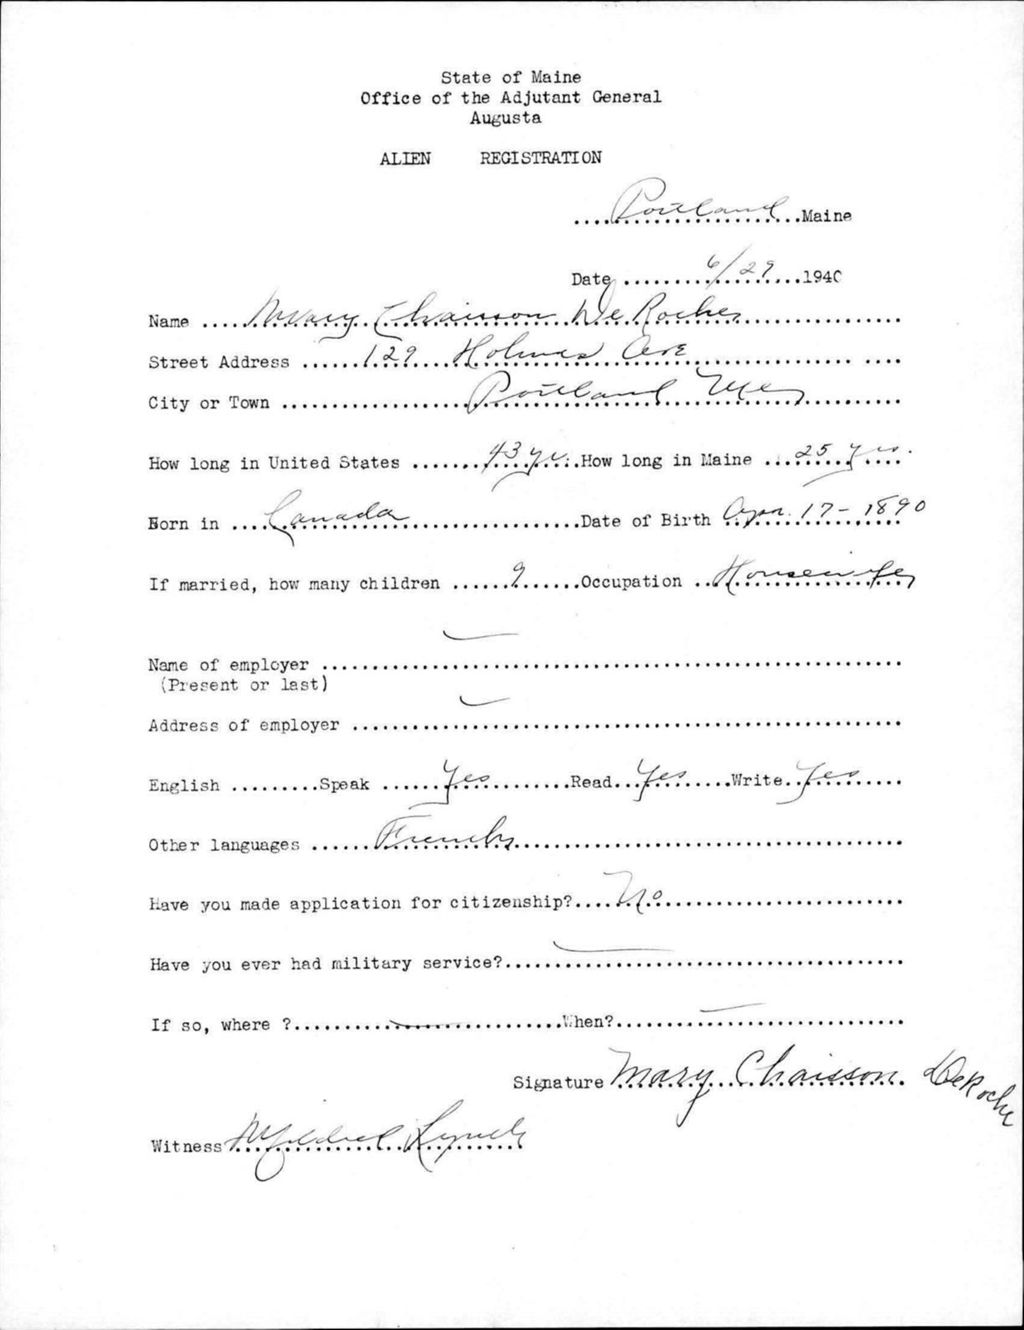 State of Maine
Office of the Adjutant General
Augusta
ALIEN REGISTRATION
....Portland....Maine
Date ....6/29....1940
Name ....Mary Chaisson De Roche....
Street Address ....129 Holmes Ave....
City or Town ....Portland Me....
How long in United States ....43 yr....How long in Maine ....25 yrs....
Born in ....Canada....Date of Birth Apr. 17 - 1890
If married, how many children ....9....Occupation ..Housewife
Name of employer ....
(Present or last)
Address of employer ....
English ....Speak ....Yes....Read...Yes....Write..Yes....
Other languages ....French....
Have you made application for citizenship?....No....
Have you ever had military service?....
If so, where ?....When?....
Signature Mary Chaisson. DeRoche
Witness Mildred Lynch